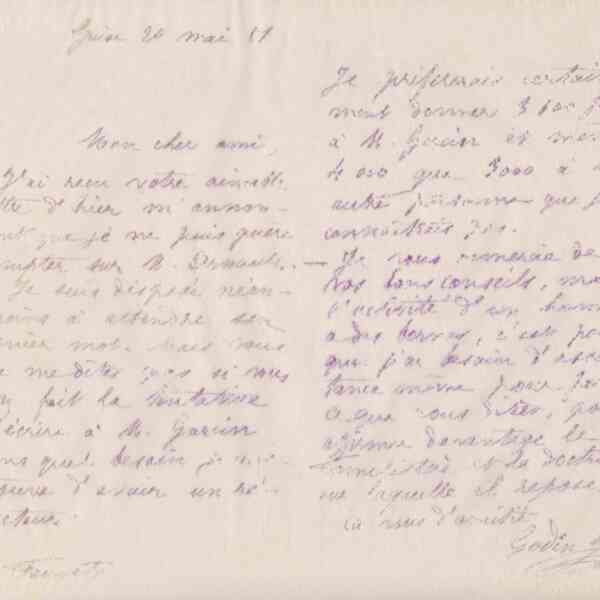 Guise 20 mai 81
Mon cher ami,
J'ai reçu votre aimable
ttre d'hier m'annon-
nt que je ne puis guère
mpter sur M.
Je suis disposé néan-
oins à attendre son
rnier mot. Mais vous
e me dites pas si vous
y fait la tentative
'écrire à M. Garin
ns quel besoin je me
ouve d'avoir un ré-
cteur.
Je préférerais certai
ment donner 3 600 f
à M. Garin et mê
4 000 que 3000 à
autre personne que j
connaîtrais pas.
Je vous remercie de
vos bons conseils, ma
l'activité d'un hom
a des bornes, c'est po
quoi j'ai besoin d'assi
tance même pour fai
ce que vous dites, po
davantage le
Familistère et la doctri
sur laquelle il repose
à vous d'amitié
Godin